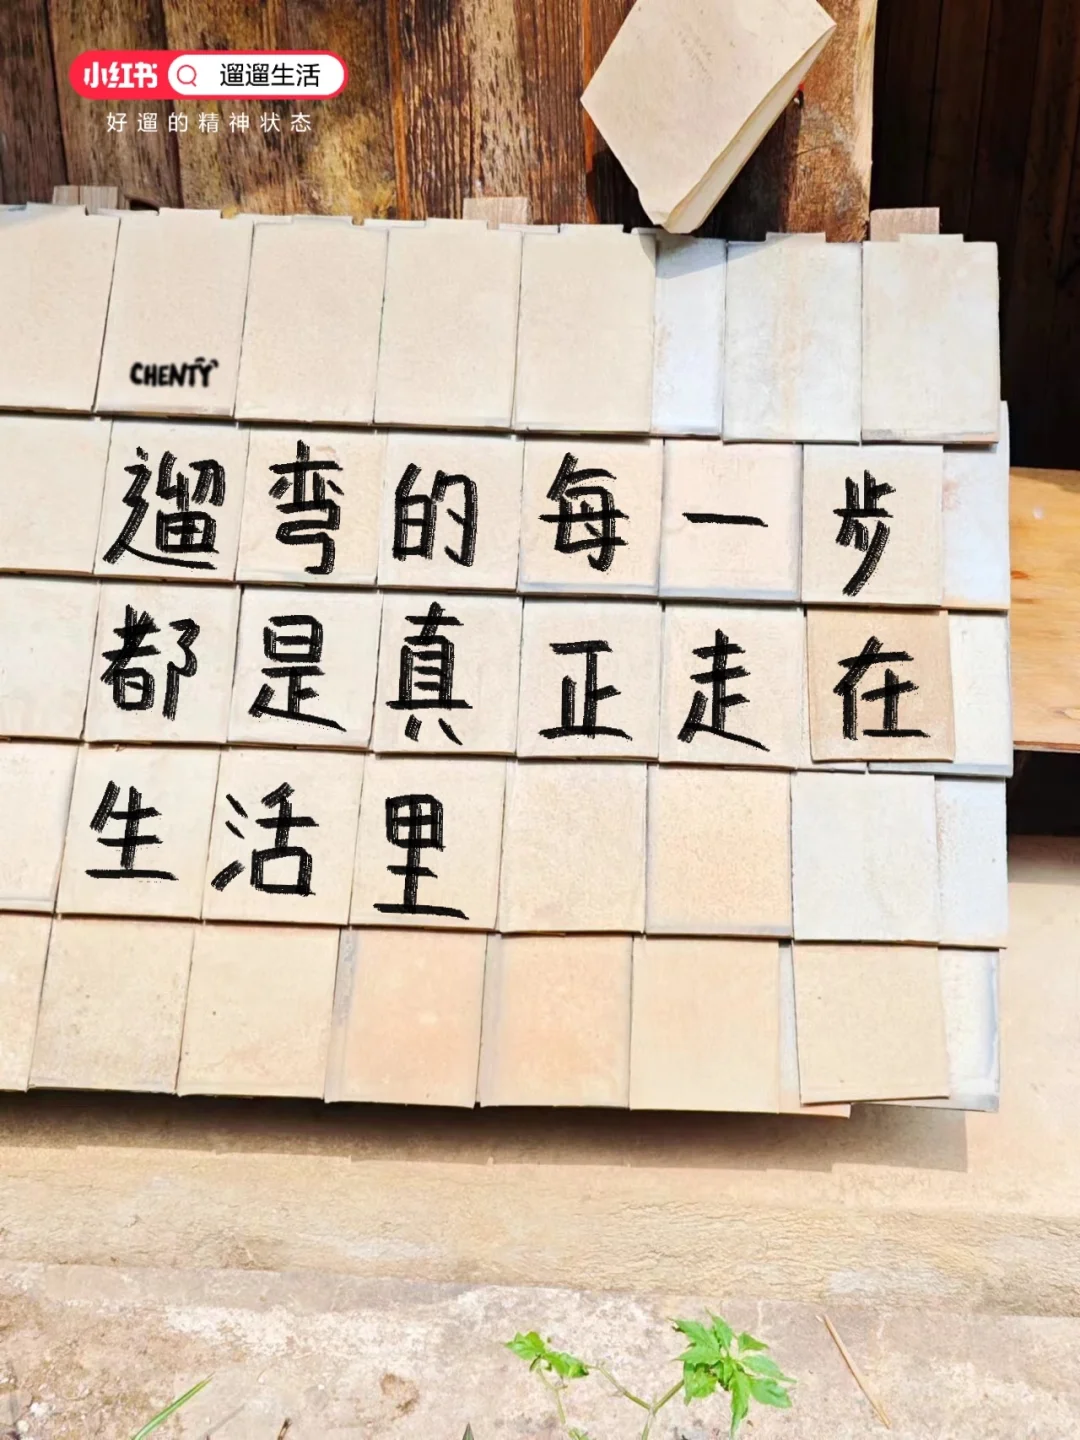 小红书 遛遛生活
好遛的精神状态
CHENTY
遛弯的每一步
都是真正走在
生活里